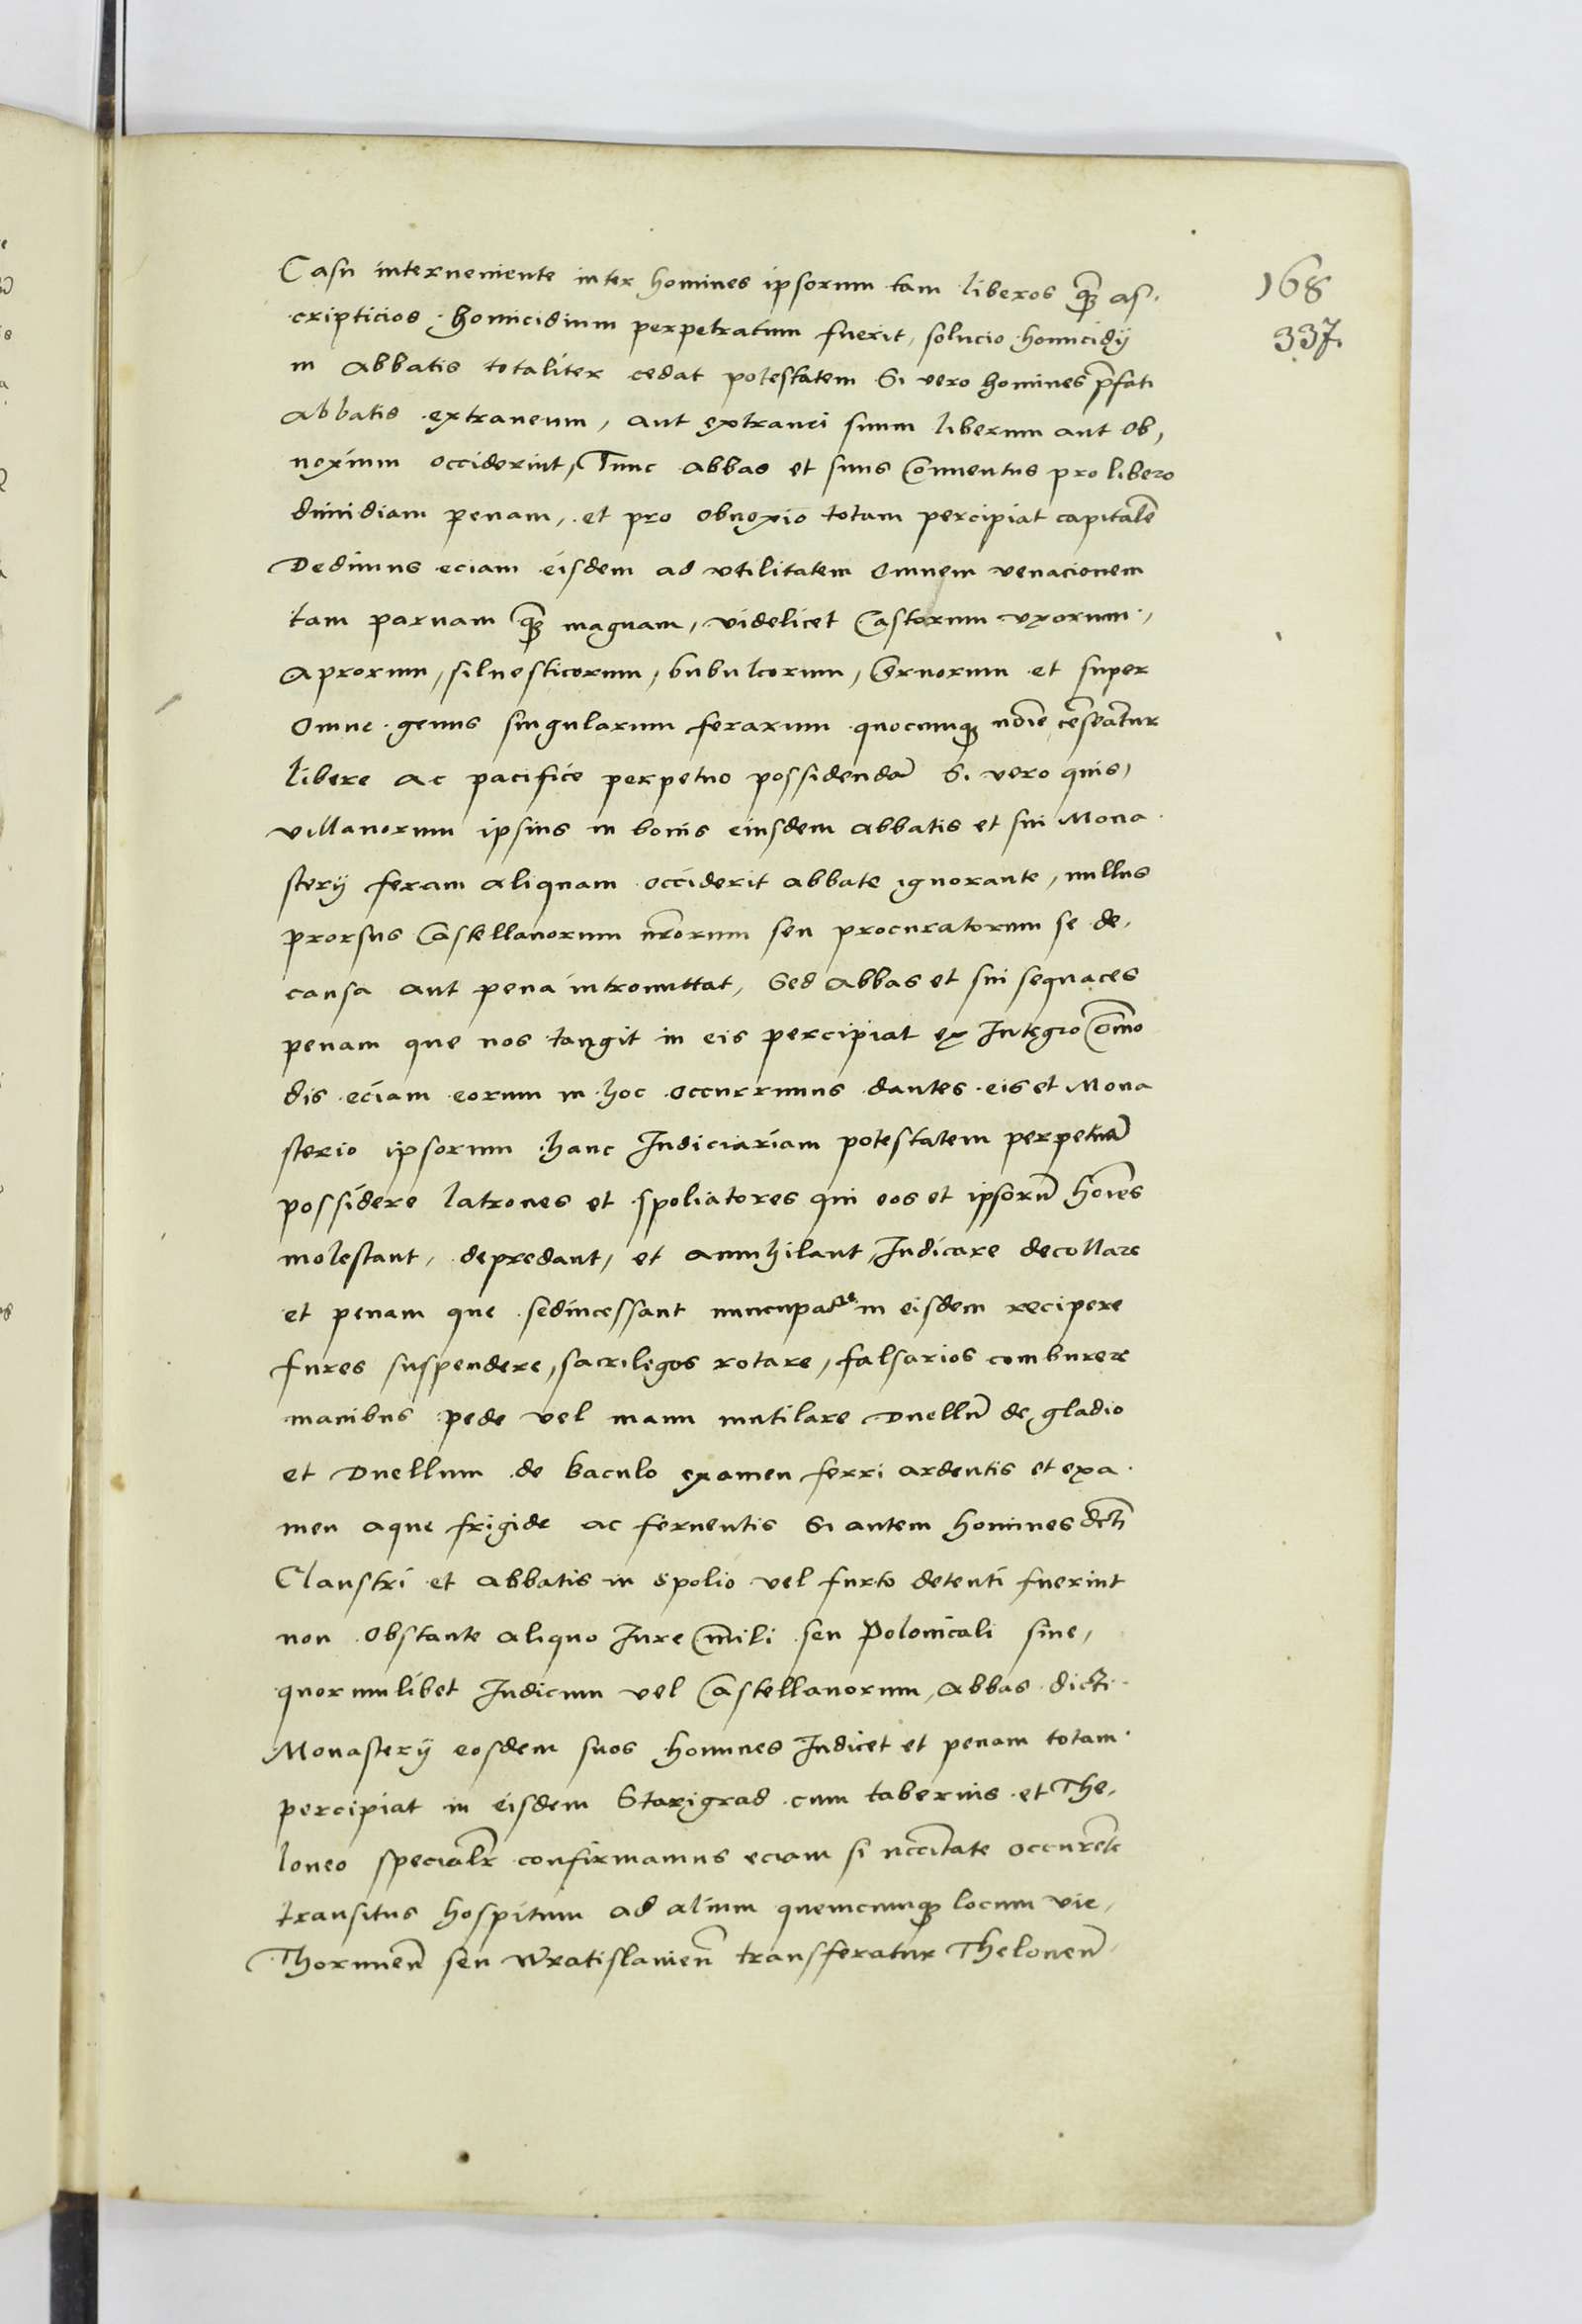 Casu interueniente inter homines ipsorum tam liberos qᷓꝫ as-
cripticios homicidium perpetratum fuerit, solucio homicidij
in Abbatis totaliter cedat potestatem Si vero homines p̄fati
Abbatis extraneum, aut extranei suum liberum aut ob,
noxium occiderint, Tunc abbas et suus Conuentus pro libero
dimidiam penam, et pro obnoxio totam percipiat capitalē
Dedimus eciam eisdem ad vtilitatem omnem venacionem
tam paruam qᷓꝫ magnam, videlicet Castorum vrorum,
Aprorum, siluesticorum, bubulcorum, Ceruorum et super
Omne genus singularum ferarum quocumqꝫ noīe cēseātur
libere ac pacifice perpetuo possidendā Si vero quis,
villanorum ipsius in bonis eiusdem abbatis et sui Mona
sterij feram aliquam occiderit abbate ignorante, nullus
prorsus Castellanorum nr̄orum seu procuratorum se de,
causa aut pena intromittat, Sed Abbas et sui sequaces
penam que nos tangit in eis percipiat ex Integro Com̄o
dis eciam eorum in hoc occurrimus dantes eis et Mona
sterio ipsorum hanc Iudiciariam potestatem perpetuā
possidere latrones et spoliatores qui eos et ipsorū hoīes
molestant, depredant, et annihilant, Iudicare decollare
et penam que sedincessant nuncupatre in eisdem recipere
fures suspendere, sacrilegos rotare, falsarios comburere
manibus pede vel manu mutilare Duellū de gladio
et Duellum de baculo examen ferri ardentis et exa
men aque frigide ac feruentis Si autem homines dc̄ti
Claustri et abbatis in spolio vel furto detenti fuerint
non obstante aliquo Iure Ciuili seu Polonicali siue,
quorumlibet Iudicum vel Castellanorum, abbas dicti
Monasterij eosdem suos homines Iudicet et penam totam
percipiat in eisdem Starigrad cum tabernis et The,
loneo specialr̄ confirmamus eciam si nc̄citate occurēte
transitus hospitum ad alium quemcumqꝫ locum vie,
Thorunen̄ seu Wratislauien̄ transferatur Theloneū
168
337.